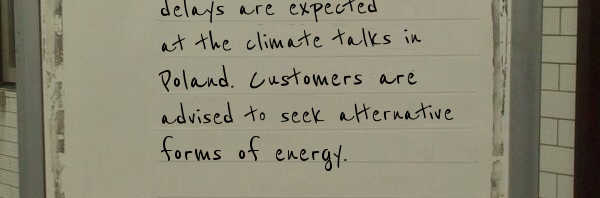 delays are expected
at the climate talks in
Poland. Customers are
advised to seek alternative
forms of energy.